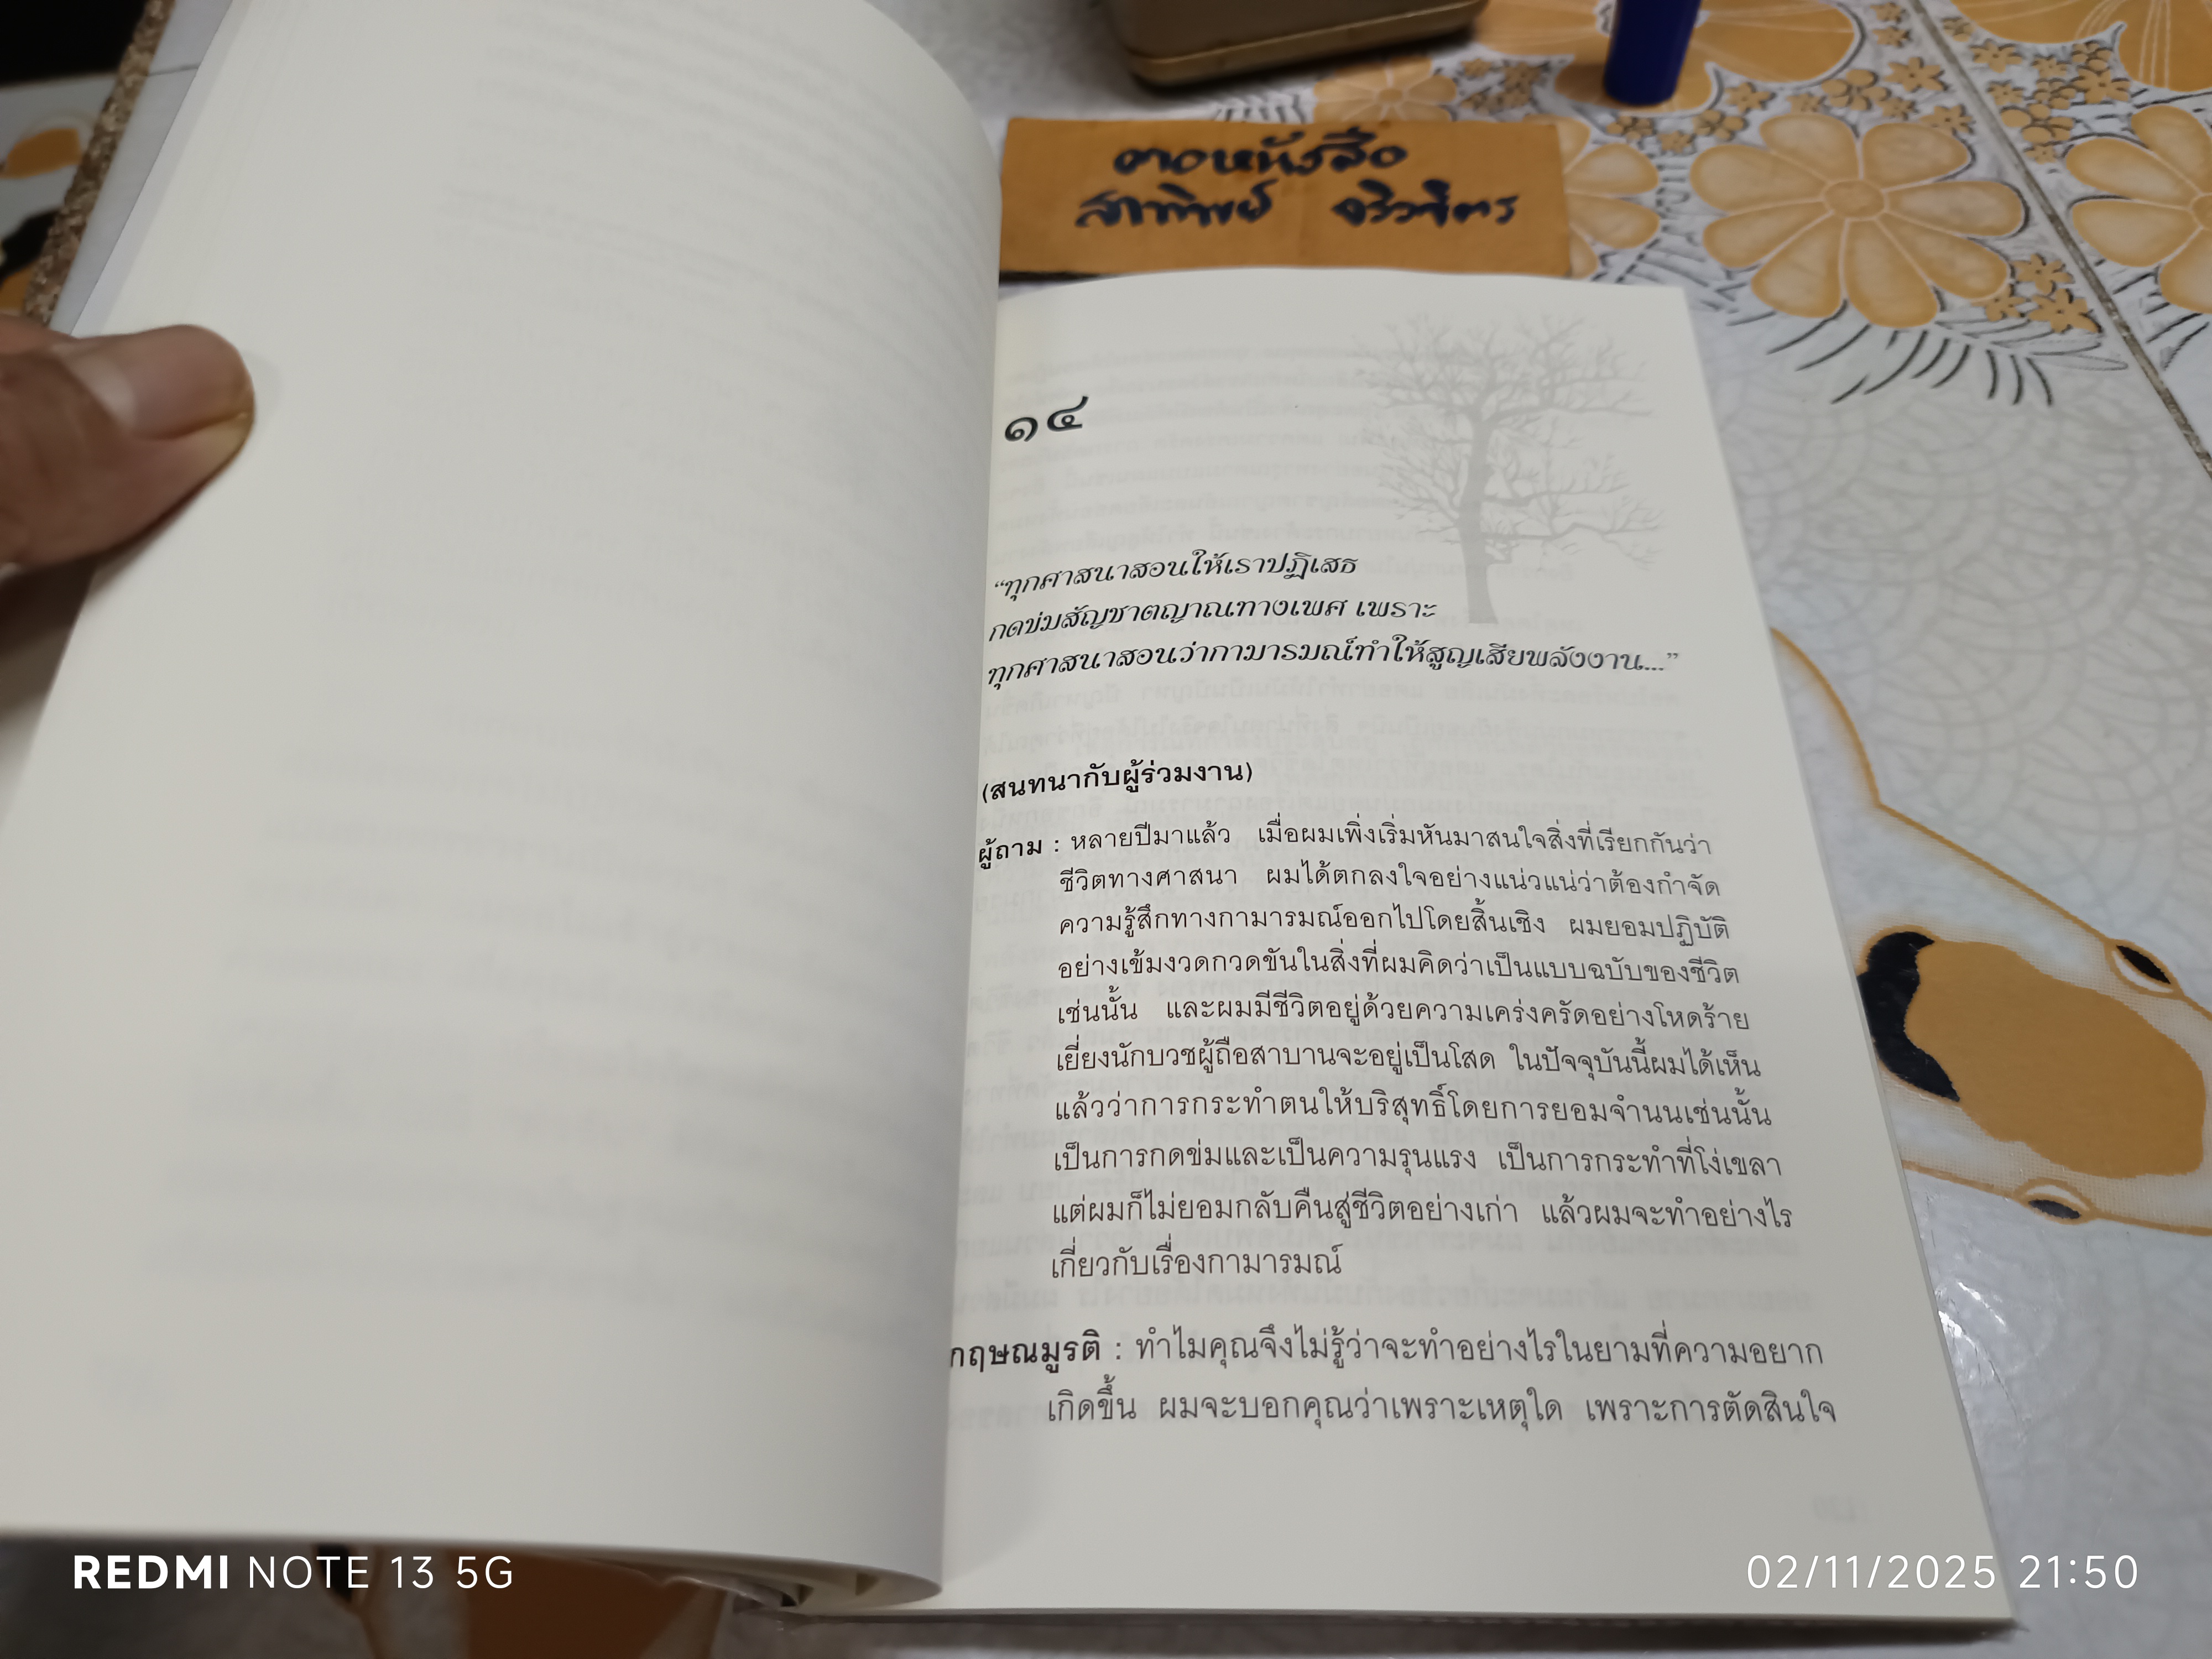 ตาดหนังสือ
สาทิพย์ จริวจิตร
๑๔
“ทุกศาสนาสอนให้เราปฏิเสธ
กดข่มสัญชาตญาณทางเพศ เพราะ
ทุกศาสนาสอนว่ากามารมณ์ทำให้สูญเสียพลังงาน...”
(สนทนากับผู้ร่วมงาน)
ผู้ถาม : หลายปีมาแล้ว เมื่อผมเพิ่งเริ่มหันมาสนใจสิ่งที่เรียกกันว่า
ชีวิตทางศาสนา ผมได้ตกลงใจอย่างแน่วแน่ว่าต้องกำจัด
ความรู้สึกทางกามารมณ์ออกไปโดยสิ้นเชิง ผมยอมปฏิบัติ
อย่างเข้มงวดกวดขันในสิ่งที่ผมคิดว่าเป็นแบบฉบับของชีวิต
เช่นนั้น และผมมีชีวิตอยู่ด้วยความเคร่งครัดอย่างโหดร้าย
เยี่ยงนักบวชผู้ถือสาบานจะอยู่เป็นโสด ในปัจจุบันนี้ผมได้เห็น
แล้วว่าการกระทำตนให้บริสุทธิ์โดยการยอมจำนนเช่นนั้น
เป็นการกดข่มและเป็นความรุนแรง เป็นการกระทำที่โง่เขลา
แต่ผมก็ไม่ยอมกลับคืนสู่ชีวิตอย่างเก่า แล้วผมจะทำอย่างไร
เกี่ยวกับเรื่องกามารมณ์
กฤษณมูรติ : ทำไมคุณจึงไม่รู้ว่าจะทำอย่างไรในยามที่ความอยาก
เกิดขึ้น ผมจะบอกคุณว่าเพราะเหตุใด เพราะการตัดสินใจ
REDMI NOTE 13 5G
02/11/2025 21:50